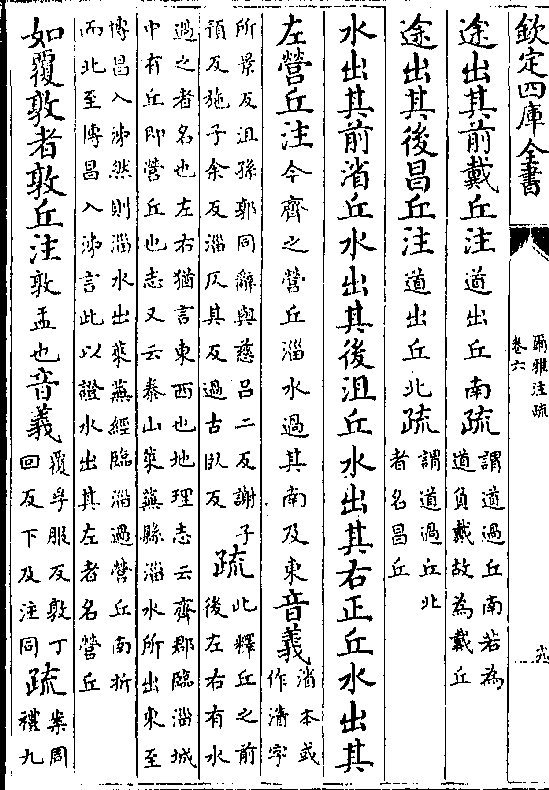 欽定四庫全書
爾雅注疏
卷六
途出其前戴丘注道出丘南疏謂道過丘南若為
道負戴故為戴丘
途出其後昌丘注道出丘北疏謂道過丘北
者名昌丘
水出其前渻丘水出其後沮丘水出其右正丘水出其
左營丘注今齊之營丘淄水過其南及東音義渻本或
作字
所景反沮孫郭同辭與慈呂二反謝子
預反施子余反淄仄其反過古臥反疏此釋丘之前
後左右有水
過之者名也左右猶言東西也地理志云齊郡臨淄城
中有丘即營丘也志又云泰山萊蕪縣淄水所出東至
博昌入泲然則淄水出萊蕪經臨淄過營丘南折
而北至博昌入泲言此以證水出其左者名營丘
如覆敦者敦丘注敦盂也音義覆孚服反敦丁
回反下及注同疏案周
禮九